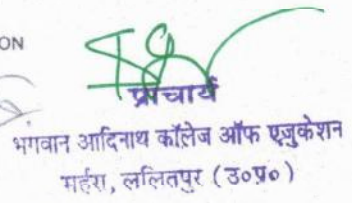 ON
प्राचार्य
भगवान आदिनाथ कॉलेज ऑफ एजुकेशन
महर्रा, ललितपुर (उ०प्र०)